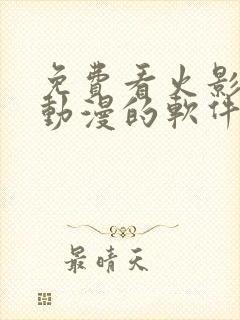 免費看火影
動漫的軟件
最晴天